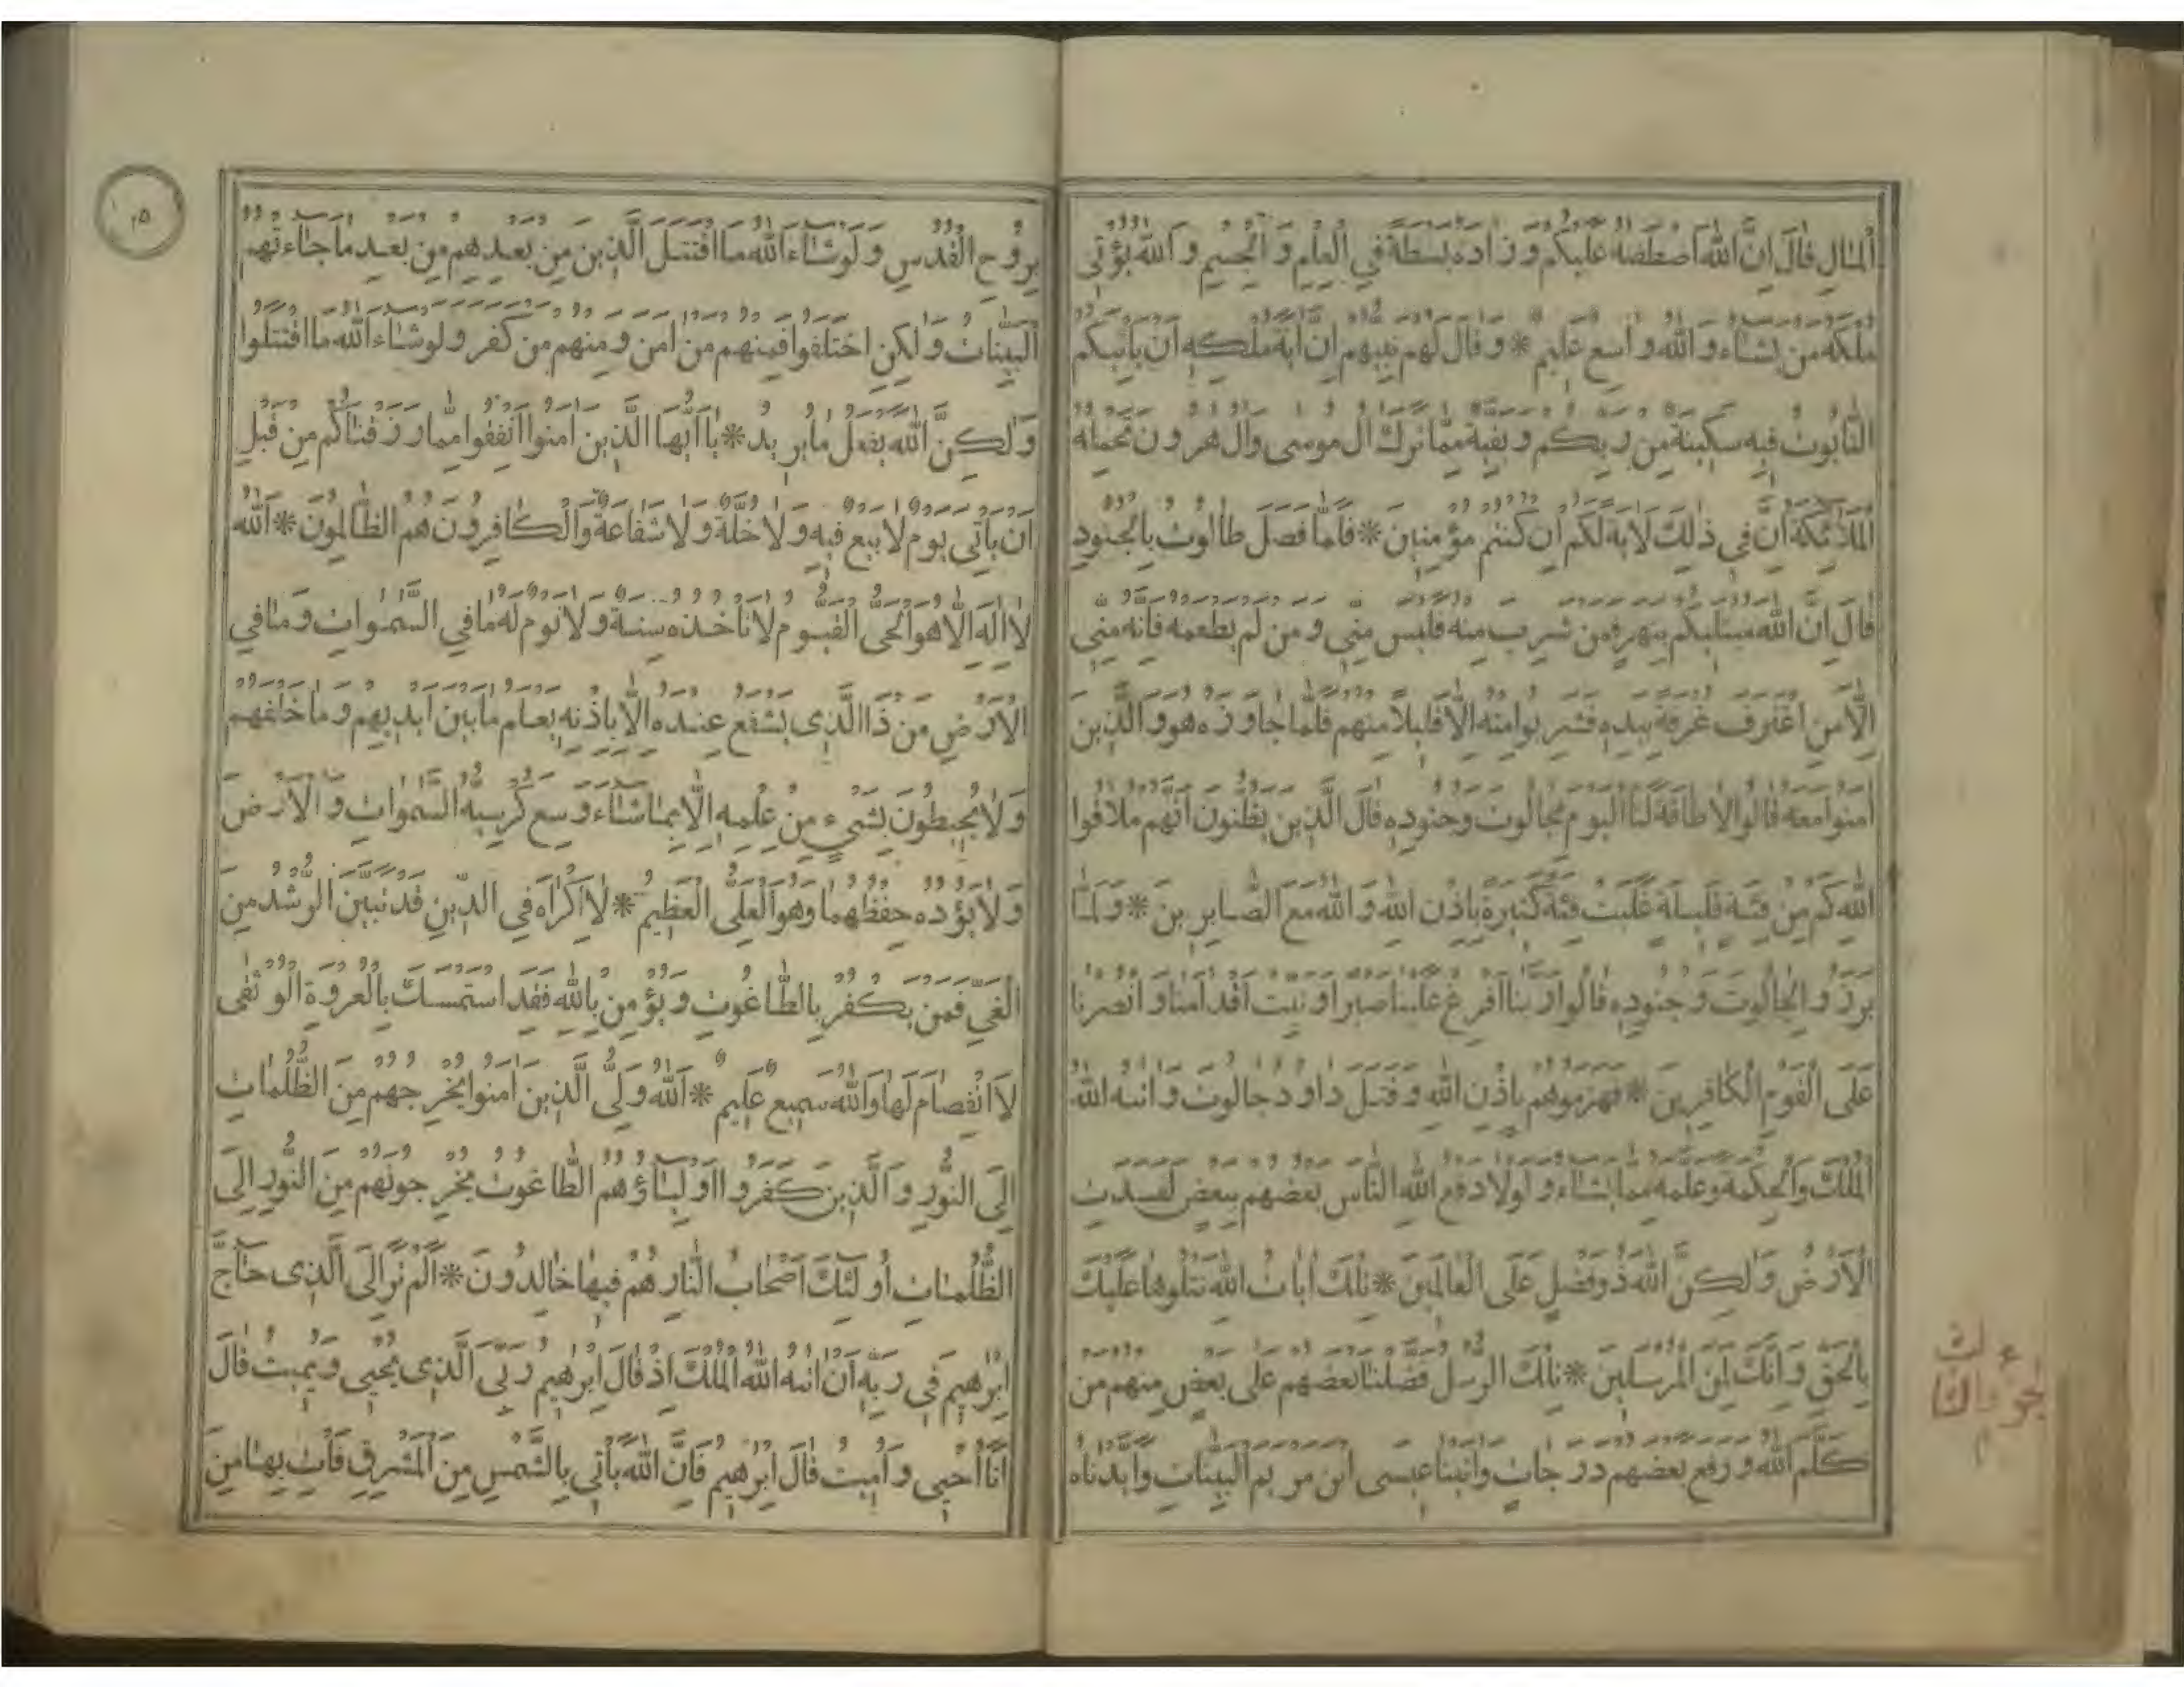 الْمَالِ قَالَ اِنَّ اللّٰهَ اصْطَفٰهُ عَلَيْكُمْ وَزَادَهُ بَسْطَةً فِي الْعِلْمِ وَالْجِسْمِ وَاللّٰهُ يُؤْتِي
مُلْكَهُ مَنْ يَشَاءُ وَاللّٰهُ وَاسِعٌ عَلِيمٌ * وَقَالَ لَهُمْ نَبِيُّهُمْ اِنَّ اٰيَةَ مُلْكِهِ اَنْ يَأْتِيَكُمُ
التَّابُوتُ فِيهِ سَكِينَةٌ مِنْ رَبِّكُمْ وَبَقِيَّةٌ مِمَّا تَرَكَ اٰلُ مُوسٰى وَاٰلُ هٰرُونَ تَحْمِلُهُ
الْمَلٰئِكَةُ اِنَّ فِي ذٰلِكَ لَاٰيَةً لَكُمْ اِنْ كُنْتُمْ مُؤْمِنِينَ * فَلَمَّا فَصَلَ طَالُوتُ بِالْجُنُودِ
قَالَ اِنَّ اللّٰهَ مُبْتَلِيكُمْ بِنَهَرٍ فَمَنْ شَرِبَ مِنْهُ فَلَيْسَ مِنِّي وَمَنْ لَمْ يَطْعَمْهُ فَاِنَّهُ مِنِّي
اِلَّا مَنِ اغْتَرَفَ غُرْفَةً بِيَدِهِ فَشَرِبُوا مِنْهُ اِلَّا قَلِيلًا مِنْهُمْ فَلَمَّا جَاوَزَهُ هُوَ وَالَّذِينَ
اٰمَنُوا مَعَهُ قَالُوا لَا طَاقَةَ لَنَا الْيَوْمَ بِجَالُوتَ وَجُنُودِهِ قَالَ الَّذِينَ يَظُنُّونَ اَنَّهُمْ مُلَاقُوا
اللّٰهِ كَمْ مِنْ فِئَةٍ قَلِيلَةٍ غَلَبَتْ فِئَةً كَثِيرَةً بِاِذْنِ اللّٰهِ وَاللّٰهُ مَعَ الصَّابِرِينَ * وَلَمَّا
بَرَزُوا لِجَالُوتَ وَجُنُودِهِ قَالُوا رَبَّنَا اَفْرِغْ عَلَيْنَا صَبْرًا وَثَبِّتْ اَقْدَامَنَا وَانْصُرْنَا
عَلَى الْقَوْمِ الْكَافِرِينَ * فَهَزَمُوهُمْ بِاِذْنِ اللّٰهِ وَقَتَلَ دَاوُدُ جَالُوتَ وَاٰتٰهُ اللّٰهُ
الْمُلْكَ وَالْحِكْمَةَ وَعَلَّمَهُ مِمَّا يَشَاءُ وَلَوْلَا دَفْعُ اللّٰهِ النَّاسَ بَعْضَهُمْ بِبَعْضٍ لَفَسَدَتِ
الْاَرْضُ وَلٰكِنَّ اللّٰهَ ذُو فَضْلٍ عَلَى الْعَالَمِينَ * تِلْكَ اٰيَاتُ اللّٰهِ نَتْلُوهَا عَلَيْكَ
بِالْحَقِّ وَاِنَّكَ لَمِنَ الْمُرْسَلِينَ * تِلْكَ الرُّسُلُ فَضَّلْنَا بَعْضَهُمْ عَلٰى بَعْضٍ مِنْهُمْ مَنْ
كَلَّمَ اللّٰهُ وَرَفَعَ بَعْضَهُمْ دَرَجَاتٍ وَاٰتَيْنَا عِيسَى ابْنَ مَرْيَمَ الْبَيِّنَاتِ وَاَيَّدْنَاهُ
بِرُوحِ الْقُدُسِ وَلَوْ شَاءَ اللّٰهُ مَا اقْتَتَلَ الَّذِينَ مِنْ بَعْدِهِمْ مِنْ بَعْدِ مَا جَاءَتْهُمُ
الْبَيِّنَاتُ وَلٰكِنِ اخْتَلَفُوا فَمِنْهُمْ مَنْ اٰمَنَ وَمِنْهُمْ مَنْ كَفَرَ وَلَوْ شَاءَ اللّٰهُ مَا اقْتَتَلُوا
وَلٰكِنَّ اللّٰهَ يَفْعَلُ مَا يُرِيدُ * يَا اَيُّهَا الَّذِينَ اٰمَنُوا اَنْفِقُوا مِمَّا رَزَقْنَاكُمْ مِنْ قَبْلِ
اَنْ يَأْتِيَ يَوْمٌ لَا بَيْعٌ فِيهِ وَلَا خُلَّةٌ وَلَا شَفَاعَةٌ وَالْكَافِرُونَ هُمُ الظَّالِمُونَ * اَللّٰهُ
لَا اِلٰهَ اِلَّا هُوَ الْحَيُّ الْقَيُّومُ لَا تَأْخُذُهُ سِنَةٌ وَلَا نَوْمٌ لَهُ مَا فِي السَّمٰوَاتِ وَمَا فِي
الْاَرْضِ مَنْ ذَا الَّذِي يَشْفَعُ عِنْدَهُ اِلَّا بِاِذْنِهِ يَعْلَمُ مَا بَيْنَ اَيْدِيهِمْ وَمَا خَلْفَهُمْ
وَلَا يُحِيطُونَ بِشَيْءٍ مِنْ عِلْمِهِ اِلَّا بِمَا شَاءَ وَسِعَ كُرْسِيُّهُ السَّمٰوَاتِ وَالْاَرْضَ
وَلَا يَؤُدُهُ حِفْظُهُمَا وَهُوَ الْعَلِيُّ الْعَظِيمُ * لَا اِكْرَاهَ فِي الدِّينِ قَدْ تَبَيَّنَ الرُّشْدُ مِنَ
الْغَيِّ فَمَنْ يَكْفُرْ بِالطَّاغُوتِ وَيُؤْمِنْ بِاللّٰهِ فَقَدِ اسْتَمْسَكَ بِالْعُرْوَةِ الْوُثْقٰى
لَا انْفِصَامَ لَهَا وَاللّٰهُ سَمِيعٌ عَلِيمٌ * اَللّٰهُ وَلِيُّ الَّذِينَ اٰمَنُوا يُخْرِجُهُمْ مِنَ الظُّلُمَاتِ
اِلَى النُّورِ وَالَّذِينَ كَفَرُوا اَوْلِيَاؤُهُمُ الطَّاغُوتُ يُخْرِجُونَهُمْ مِنَ النُّورِ اِلَى
الظُّلُمَاتِ اُولٰئِكَ اَصْحَابُ النَّارِ هُمْ فِيهَا خَالِدُونَ * اَلَمْ تَرَ اِلَى الَّذِي حَاجَّ
اِبْرٰهِيمَ فِي رَبِّهِ اَنْ اٰتٰهُ اللّٰهُ الْمُلْكَ اِذْ قَالَ اِبْرٰهِيمُ رَبِّيَ الَّذِي يُحْيِي وَيُمِيتُ قَالَ
اَنَا اُحْيِي وَاُمِيتُ قَالَ اِبْرٰهِيمُ فَاِنَّ اللّٰهَ يَأْتِي بِالشَّمْسِ مِنَ الْمَشْرِقِ فَأْتِ بِهَا مِنَ